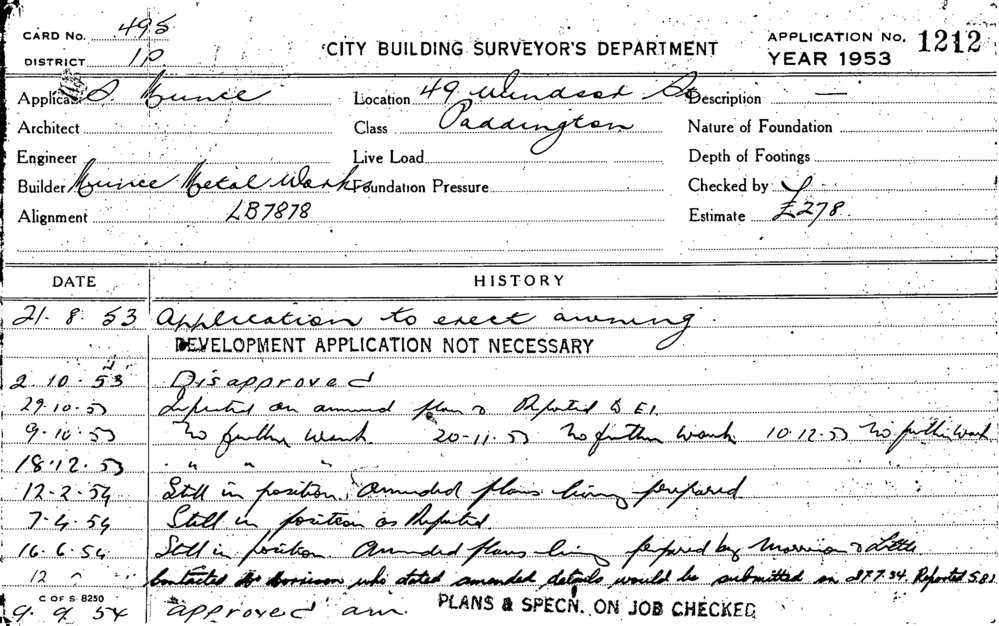 CARD No. 495
DISTRICT 10
CITY BUILDING SURVEYOR'S DEPARTMENT
APPLICATION No. 1212
YEAR 1953
Applicant S. Munce Location 49 Windsor St Description —
Architect Class Paddington Nature of Foundation
Engineer Live Load Depth of Footings
Builder Munce Metal Works Foundation Pressure Checked by
Alignment LB7878 Estimate £278.
DATE HISTORY
21.8.53 Application to erect awning.
DEVELOPMENT APPLICATION NOT NECESSARY
2.10.53 Disapproved
29.10.53 on amend plan & Reported to E.I.
9.10.53 No further work 20-11.53 No further work 10.12.53 No further work
18.12.53 " " "
12.2.54 Still in position, Amended plans being prepared
7.4.54 Still in position as Reported.
16.6.54 Still in position Amended plans being prepared by Morrison & Little
12 " " Contacted Mr Morrison who stated amended details would be submitted on 27.7.54. Reported
C OF S 8250
9.9.54 approved PLANS & SPECN. ON JOB CHECKED